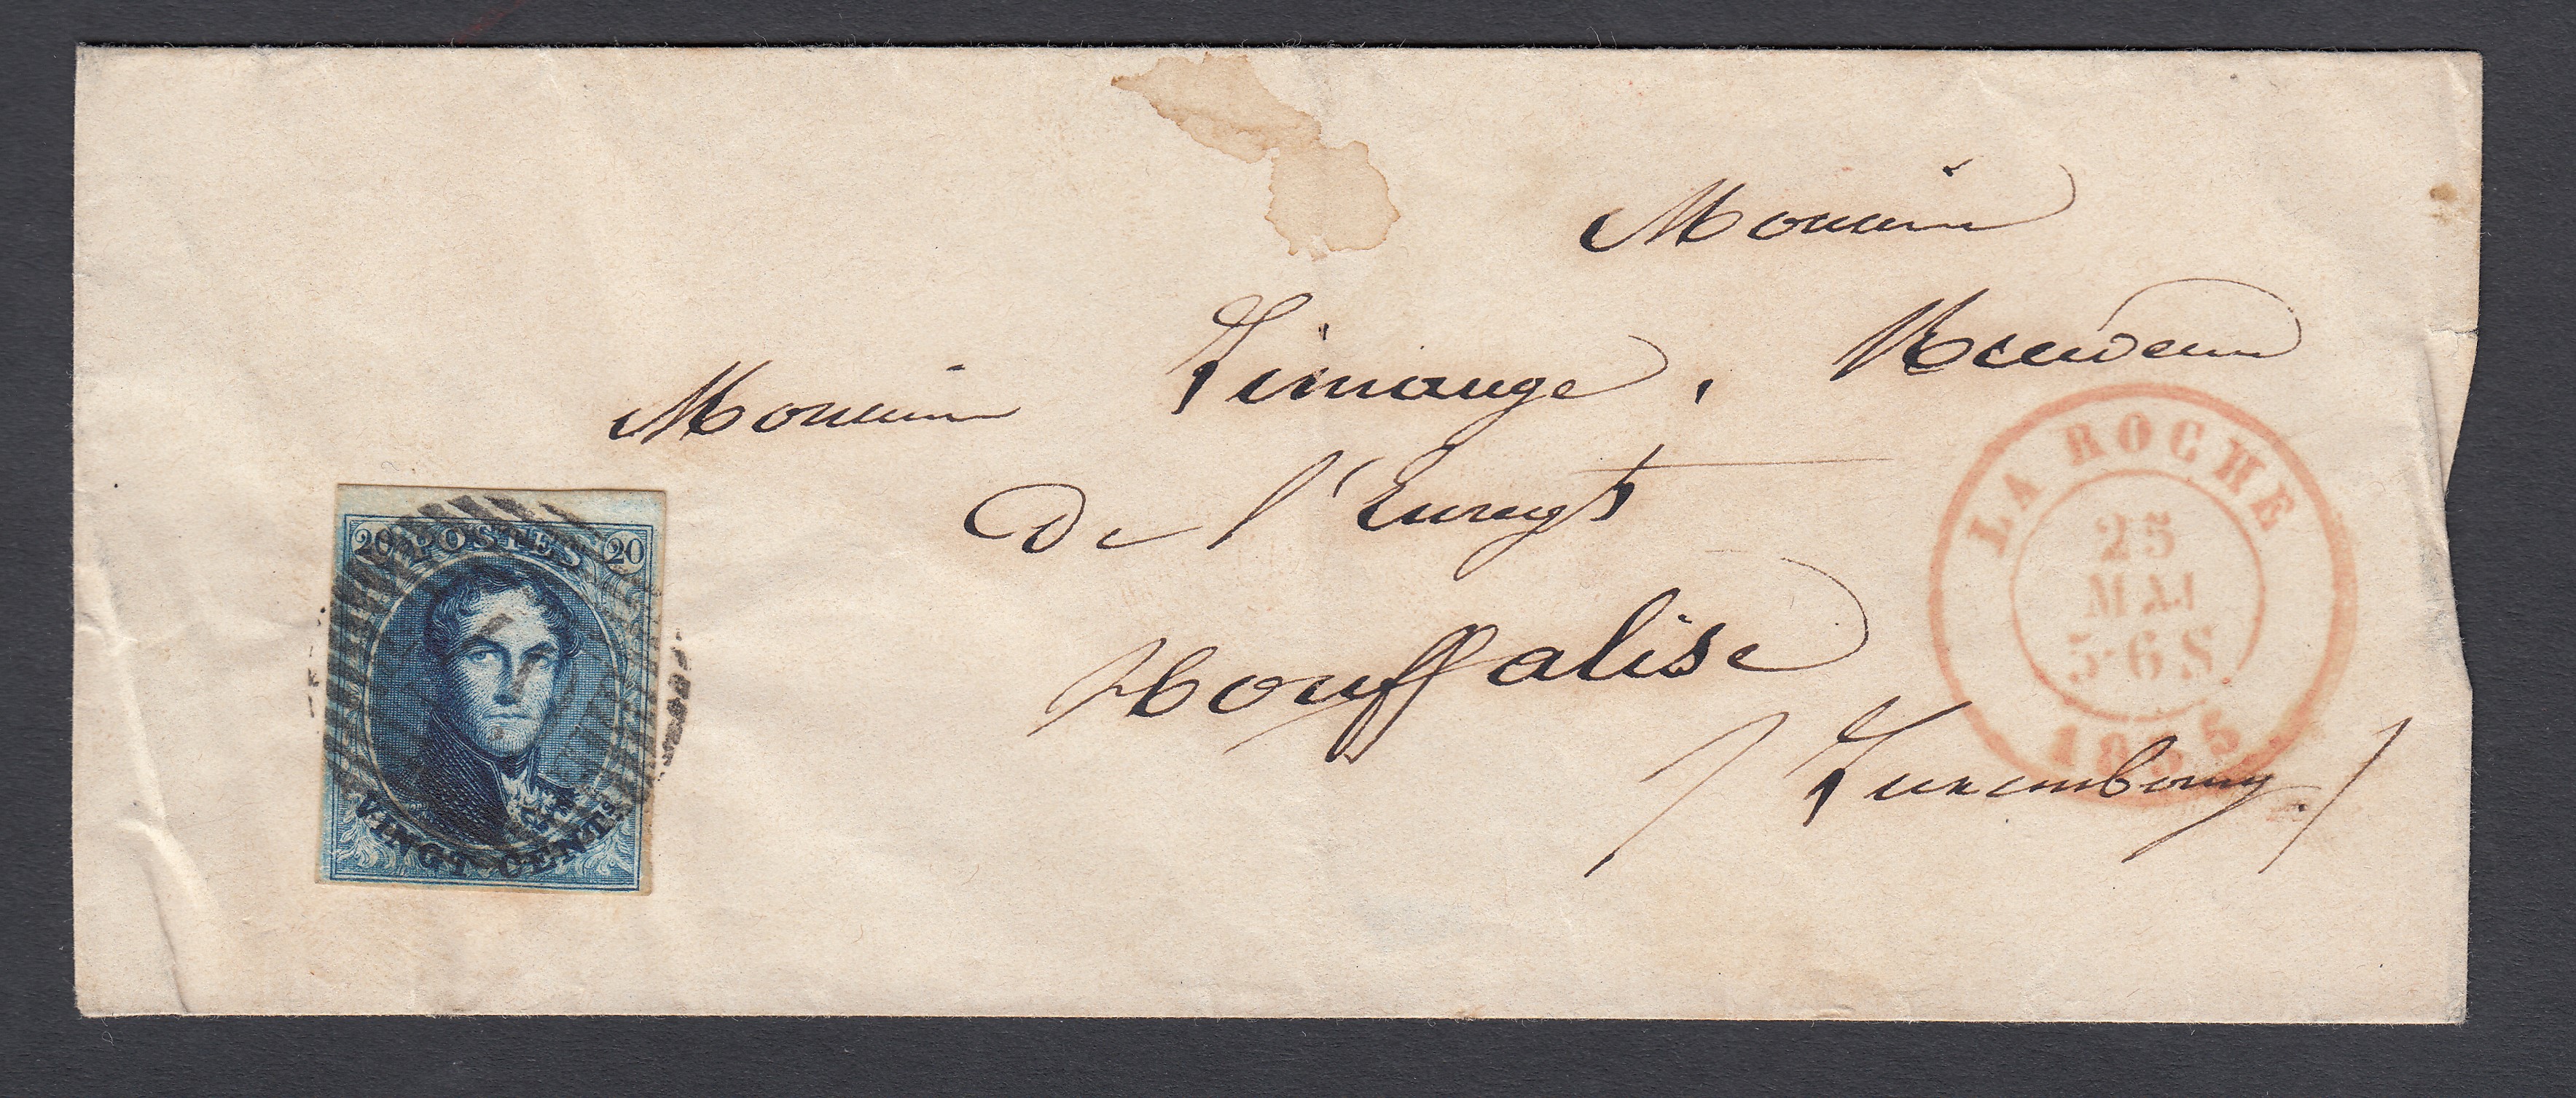 Monsieur
Monsieur Limange, Receveur
De l'Enregt
Houffalise
/ Luxembourg. /
20 POSTES 20
VINGT CENTS
LA ROCHE
25
MAI
5-6 S
1855